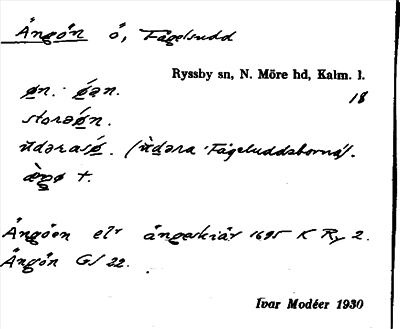 Ångön ö, Fågelsudd
Ryssby sn, N. Möre hd, Kalm. l.
18
øn. øən.
storaøn.
ɯdərasø. (ɯdəra Fågeluddsborna).
æŋø +.
Ångöen elr ångeskiär 1695 K Ry 2.
Ångön GS 22.
Ivar Modéer 1930